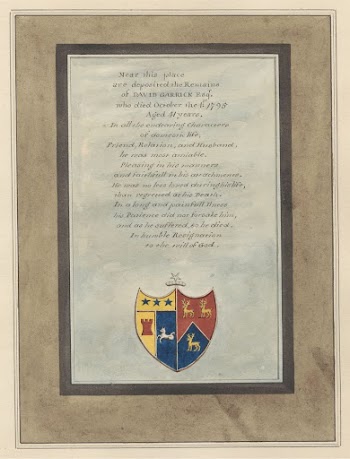 Near this place
are deposited the Remains
of DAVID GARRICK Esqr.
who died October the 1795
Aged 41 years.
In all the endearing Characters
of domestic life,
Friend, Relation, and Husband,
he was most amiable.
Pleasing in his manners,
and faithfull in his attachments.
He was no less loved during his life,
than regretted at his Death.
In a long and painfull Illness
his Patience did not forsake him,
and as he suffered, so he died,
In humble Resignation
to the will of God.